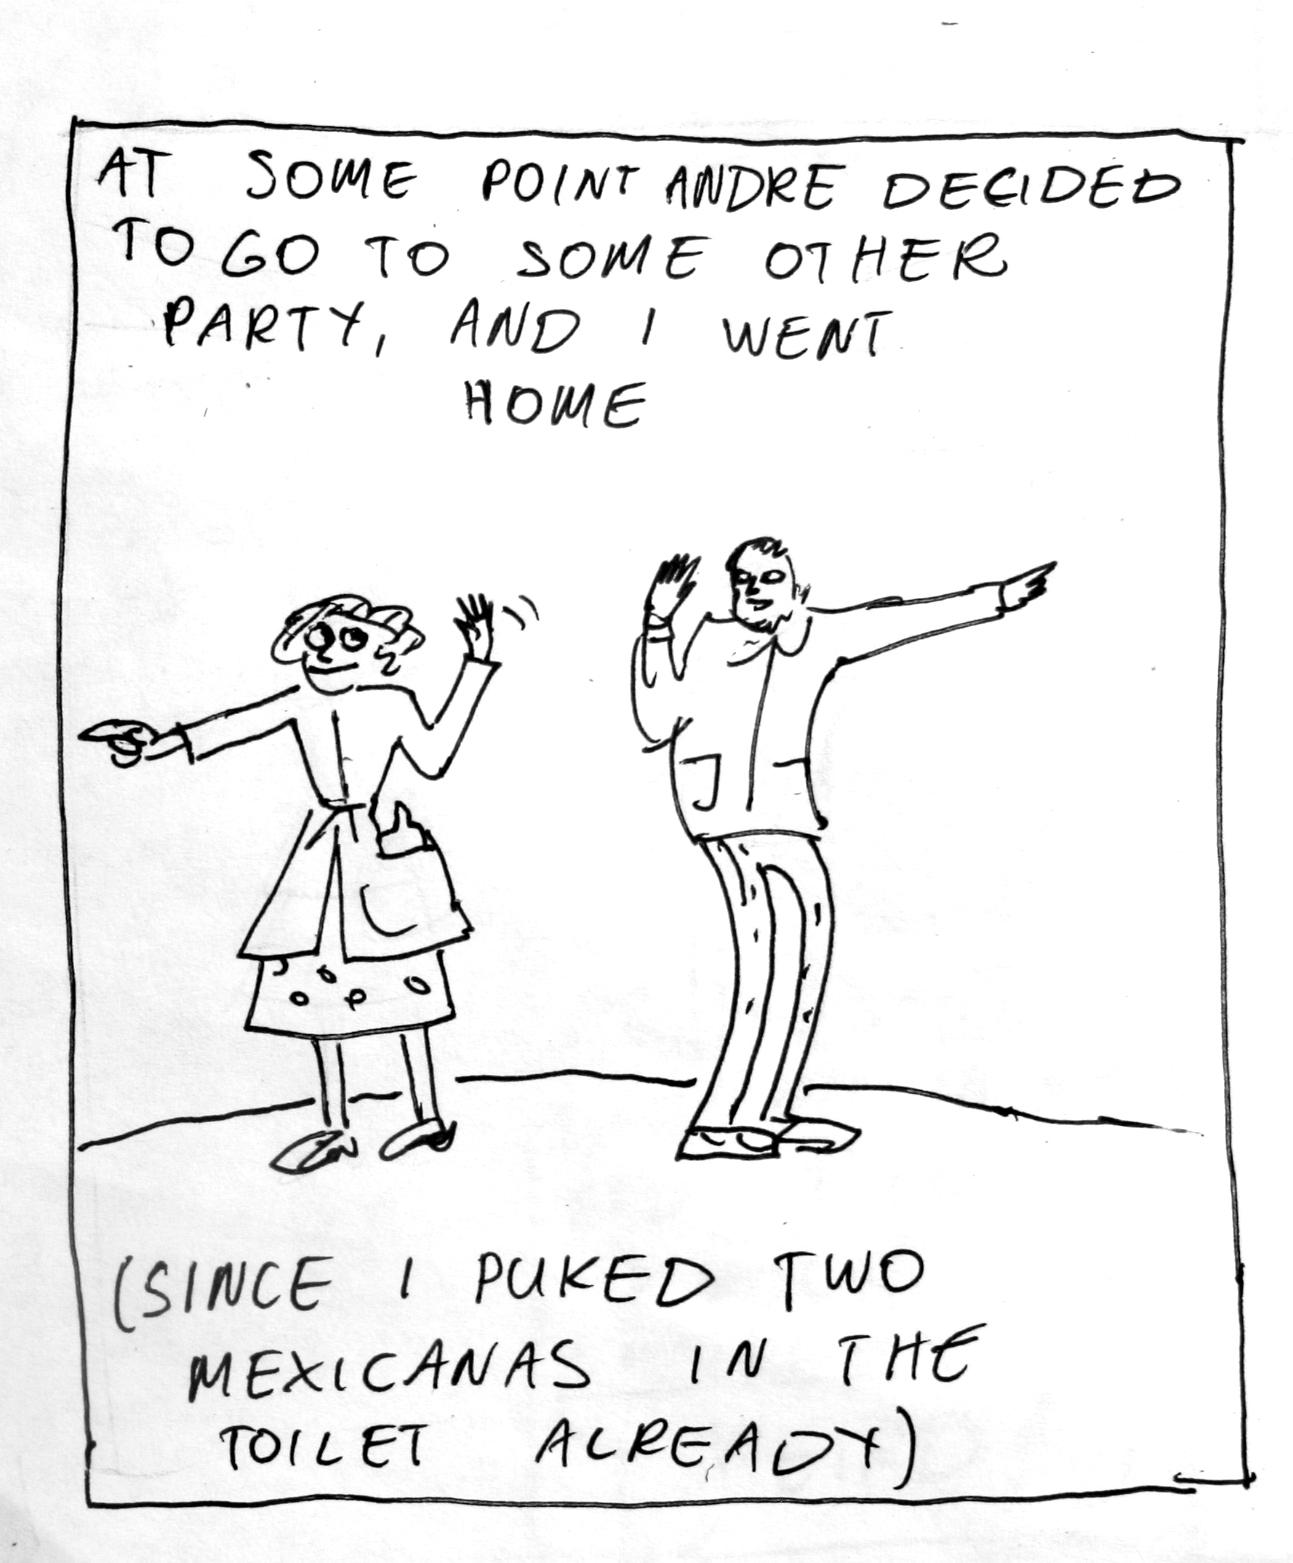 AT SOME POINT ANDRE DECIDED
TO GO TO SOME OTHER
PARTY, AND I WENT
HOME
(SINCE I PUKED TWO
MEXICANAS IN THE
TOILET ALREADY)